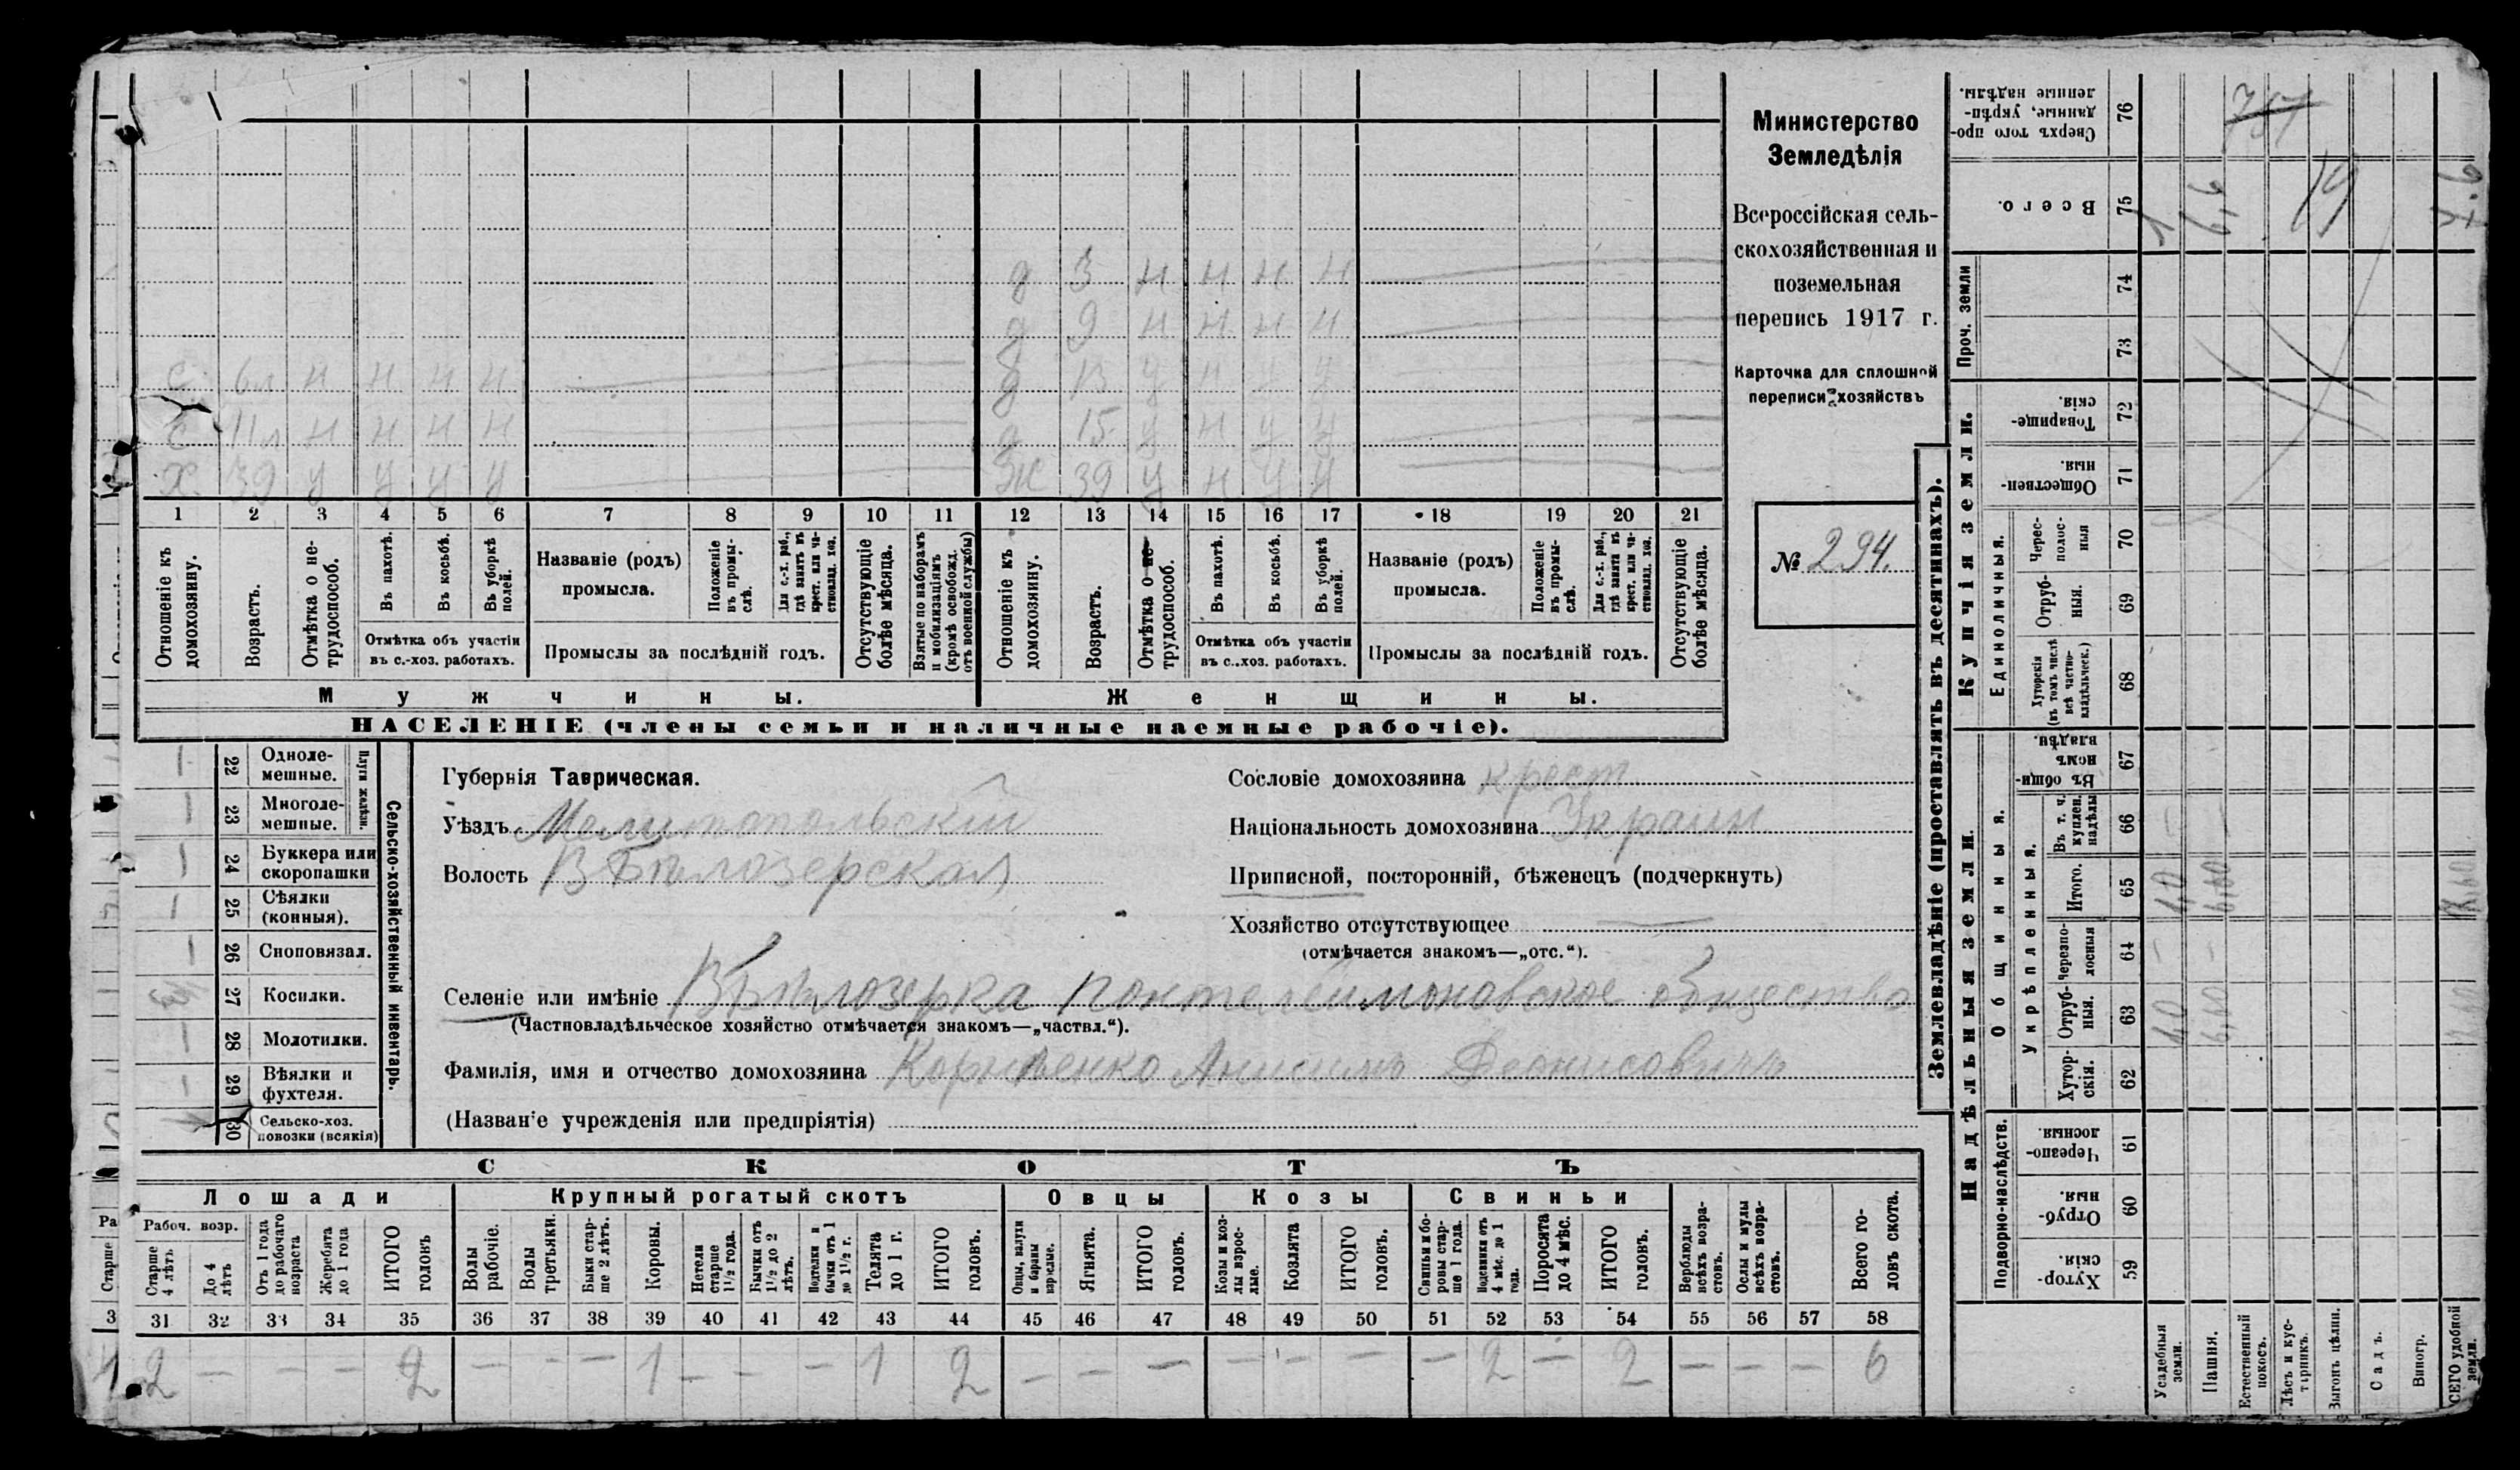 Министерство
Земледѣлія
Всероссійская сель-
скохозяйственная и
поземельная
перепись 1917 г.
Карточка для сплошной
переписи хозяйствъ
№ 294.
д 3 н н н н
д 9 н н н н
с 6л н н н н — д 13 у н у у
с 11л н н н н — д 15 у н у у
х 39 у у у у — ж 39 у н у у
1 2 3 4 5 6 7 8 9 10 11 12 13 14 15 16 17 18 19 20 21
Отношеніе къ домохозяину.
Возрастъ.
Отмѣтка о не-трудоспособ.
Въ пахотѣ.
Въ косьбѣ.
Въ уборкѣ полей.
Отмѣтка объ участіи
въ с.-хоз. работахъ.
Названіе (родъ)
промысла.
Положеніе въ промы-слѣ.
Для с.-х. раб., гдѣ занятъ въ крест. или ча-стновлад. хоз.
Промыслы за послѣдній годъ.
Отсутствующіе болѣе мѣсяца.
Взятые по наборамъ и мобилизаціямъ (кромѣ освобожд. отъ военной службы)
Отношеніе къ домохозяину.
Возрастъ.
Отмѣтка о не-трудоспособ.
Въ пахотѣ.
Въ косьбѣ.
Въ уборкѣ полей.
Отмѣтка объ участіи
въ с.-хоз. работахъ.
Названіе (родъ)
промысла.
Положеніе въ промы-слѣ.
Для с.-х. раб., гдѣ занятъ въ крест. или ча-стновлад. хоз.
Промыслы за послѣдній годъ.
Отсутствующіе болѣе мѣсяца.
Мужчины. Женщины.
НАСЕЛЕНІЕ (члены семьи и наличные наемные рабочіе).
22 Одноле-мешные.
23 Многоле-мешные.
Плуги желѣзн.
24 Буккера или скоропашки
25 Сѣялки (конныя).
26 Сноповязал.
27 Косилки.
28 Молотилки.
29 Вѣялки и фухтеля.
30 Сельско-хоз. повозки (всякія)
Сельско-хозяйственный инвентарь.
Губернія Таврическая.
Уѣздъ Мелитопольскій
Волость В Бѣлозерская
Селеніе или имѣніе В Бѣлозерка Пантелеймоновское общество
(Частновладѣльческое хозяйство отмѣчается знакомъ—„частвл.“).
Фамилія, имя и отчество домохозяина Корніенко Анисимъ Деонисовичъ
(Названіе учрежденія или предпріятія)
Сословіе домохозяина крест
Національность домохозяина Украин
Приписной, посторонній, бѣженецъ (подчеркнуть)
Хозяйство отсутствующее —
(отмѣчается знакомъ—„отс.“).
СКОТЪ
Лошади Крупный рогатый скотъ Овцы Козы Свиньи
Рабоч. возр.
Старше 4 лѣтъ
До 4 лѣтъ
Отъ 1 года до рабочаго возраста
Жеребята до 1 года
ИТОГО головъ
Волы рабочіе.
Волы третьяки.
Быки стар-ше 2 лѣтъ.
Коровы.
Нетели старше 1½ года.
Бычки отъ 1½ до 2 лѣтъ.
Подтелки и бычки отъ 1 до 1½ г.
Телята до 1 г.
ИТОГО головъ.
Овцы, валухи и бараны взрослые.
Ягнята.
ИТОГО головъ.
Козы и коз-лы взрос-лые.
Козлята
ИТОГО головъ.
Свиньи и бо-ровы стар-ше 1 года.
Подсвинки отъ 4 мѣс. до 1 года.
Поросята до 4 мѣс.
ИТОГО головъ.
Верблюды всѣхъ возра-стовъ.
Ослы и мулы всѣхъ возра-стовъ.
Всего го-ловъ скота.
31 32 33 34 35 36 37 38 39 40 41 42 43 44 45 46 47 48 49 50 51 52 53 54 55 56 57 58
2 — — — 2 — — — 1 — — — 1 2 — — — — — — — 2 — 2 — — — 6
Землевладѣніе (проставлять въ десятинахъ).
Сверхъ того про-данные, укрѣп-ленные надѣлы. 76
Всего. 75
Проч. земли 74 73
Купчія земли.
Товарище-скія. 72
Обществен-ныя. 71
Единоличныя.
Черес-полос-ныя 70
Отруб-ныя. 69
Хуторскія (въ томъ числѣ всѣ частно-владѣльческ.) 68
Надѣльныя земли.
Общинныя.
Въ общи-номъ владѣн. 67
Укрѣпленныя.
Въ т. ч. куплен. надѣлы 66
Итого. 65
Черезпо-лосныя 64
Отруб-ныя. 63
Хутор-скія. 62
Подворно-наслѣдств.
Черезпо-лосныя. 61
Отруб-ныя. 60
Хутор-скія. 59
Усадебныя земли.
Пашня.
Естественный покосъ.
Лѣсъ и кус-тарникъ.
Выгонъ цѣлин.
Садъ.
Виногр.
ВСЕГО удобной земли.